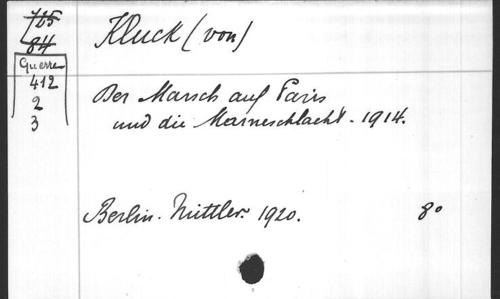 765
84
Guerre
412
2
3
Kluck (von)
Der Marsch auf Paris
und die Marneschlacht. 1914.
Berlin. Mittler. 1920. 8°